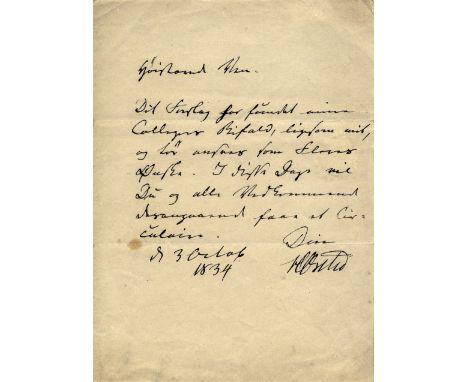 Høistærede Ven.
Dit Forslag har fundet mine
Collegers Bifald, ligesom mit,
og tør ansees som Fleres
Ønske. I disse Dage vil
Du og alle Vedkommende
desangaaende faae et Cir-
culaire.
Din
d 3 Octob
1834
HCØrsted